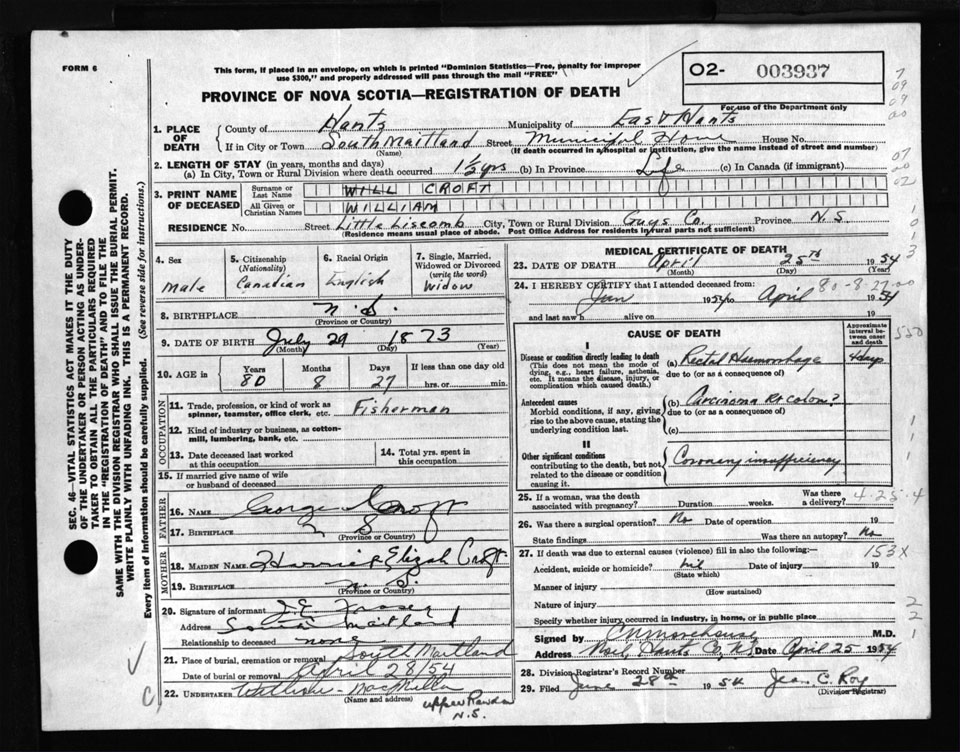 FORM 6
This form, if placed in an envelope, on which is printed "Dominion Statistics—Free, penalty for improper
use $300," and properly addressed will pass through the mail "FREE"
O2- 003937
For use of the Department only
PROVINCE OF NOVA SCOTIA—REGISTRATION OF DEATH
1. PLACE OF DEATH
County of Hants Municipality of East Hants
If in City or Town South Maitland Street Municipal Home House No.
(Name) (If death occurred in a hospital or institution, give the name instead of street and number)
2. LENGTH OF STAY (in years, months and days)
(a) In City, Town or Rural Division where death occurred 1½ yrs (b) In Province Life (c) In Canada (if immigrant)
3. PRINT NAME OF DECEASED
Surname or Last Name WILL CROFT
All Given or Christian Names WILLIAM
RESIDENCE No. Street Little Liscomb City, Town or Rural Division Guys Co. Province N.S.
(Residence means usual place of abode. Post Office Address for residents in rural parts not sufficient)
4. Sex Male
5. Citizenship (Nationality) Canadian
6. Racial Origin English
7. Single, Married, Widowed or Divorced (write the word) Widow
8. BIRTHPLACE N.S.
(Province or Country)
9. DATE OF BIRTH July 29 1873
(Month) (Day) (Year)
10. AGE in Years 80 Months 8 Days 27 If less than one day old hrs. or min.
OCCUPATION
11. Trade, profession, or kind of work as spinner, teamster, office clerk, etc. Fisherman
12. Kind of industry or business, as cotton-mill, lumbering, bank, etc.
13. Date deceased last worked at this occupation
14. Total yrs. spent in this occupation
15. If married give name of wife or husband of deceased
FATHER
16. Name George Croft
17. Birthplace N S
(Province or Country)
MOTHER
18. MAIDEN NAME Harriet Elizah Croft
19. BIRTHPLACE N. S.
(Province or Country)
20. Signature of informant J.E. Fraser
Address South Maitland
Relationship to deceased none
21. Place of burial, cremation or removal South Maitland
Date of burial or removal April 28/54
22. UNDERTAKER MacMillan
(Name and address)
Upper Rawdon
N.S.
MEDICAL CERTIFICATE OF DEATH
23. DATE OF DEATH April 25th 1954
(Month) (Day) (Year)
24. I HEREBY CERTIFY that I attended deceased from: 80-8-27-00
Jan 1954 to April 1954
and last saw h alive on 19
CAUSE OF DEATH
Approximate interval between onset and death
I
Disease or condition directly leading to death
(This does not mean the mode of dying, e.g., heart failure, asthenia, etc. It means the disease, injury, or complication which caused death.)
(a) Rectal Haemorrhage
due to (or as a consequence of)
Antecedent causes
Morbid conditions, if any, giving rise to the above cause, stating the underlying condition last.
(b) Carcinoma Rt colon?
due to (or as a consequence of)
(c)
II
Other significant conditions
contributing to the death, but not related to the disease or condition causing it.
Coronary insufficiency
25. If a woman, was the death associated with pregnancy? Duration weeks. Was there a delivery?
4-25-4
26. Was there a surgical operation? No Date of operation 19
State findings Was there an autopsy? No
27. If death was due to external causes (violence) fill in also the following:—
153X
Accident, suicide or homicide? nil Date of injury 19
(State which)
Manner of injury
(How sustained)
Nature of injury
Specify whether injury occurred in industry, in home, or in public place
Signed by Morehouse M.D.
Address Noel, Hants Co, N.S. Date April 25 1954
28. Division Registrar's Record Number
29. Filed June 28th 1954 Jean C. Roy
(Division Registrar)
SEC. 46—VITAL STATISTICS ACT MAKES IT THE DUTY
OF THE UNDERTAKER OR PERSON ACTING AS UNDERTAKER TO OBTAIN ALL THE PARTICULARS REQUIRED
IN THE "REGISTRATION OF DEATH" AND TO FILE THE
SAME WITH THE DIVISION REGISTRAR WHO SHALL ISSUE THE BURIAL PERMIT.
WRITE PLAINLY WITH UNFADING INK. THIS IS A PERMANENT RECORD.
Every item of Information should be carefully supplied. (See reverse side for instructions.)